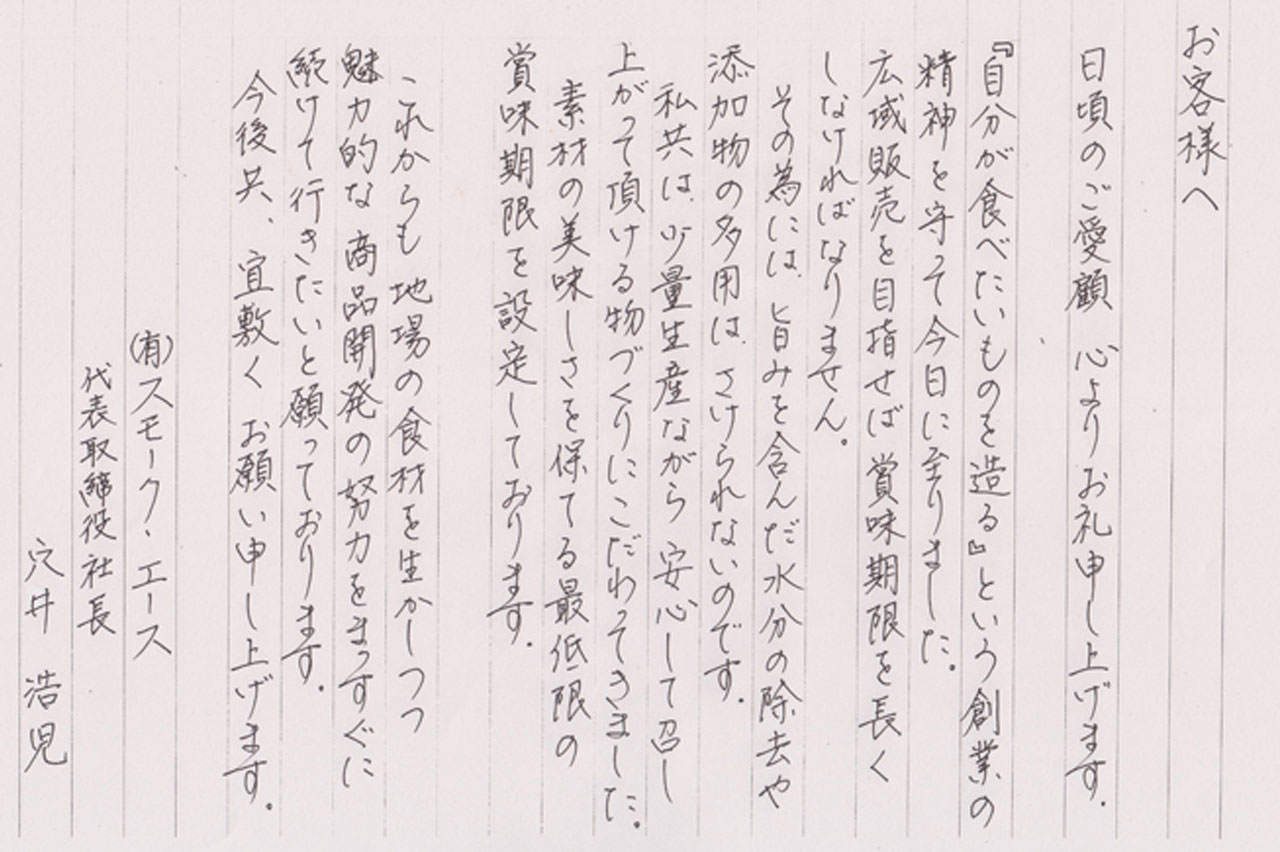 お客様へ
日頃のご愛顧 心よりお礼申し上げます.
『自分が食べたいものを造る』という創業の
精神を守って今日に至りました.
広域販売を目指せば賞味期限を長く
しなければなりません.
その為には、旨みを含んだ水分の除去や
添加物の多用は、さけられないのです.
私共は、少量生産ながら 安心して召し
上がって頂ける物づくりにこだわってきました.
素材の美味しさを保てる最低限の
賞味期限を設定しております.
これからも地場の食材を生かしつつ
魅力的な商品開発の努力をまっすぐに
続けて行きたいと願っております.
今後共、宜敷くお願い申し上げます.
(有)スモーク・エース
代表取締役社長
穴井 浩児